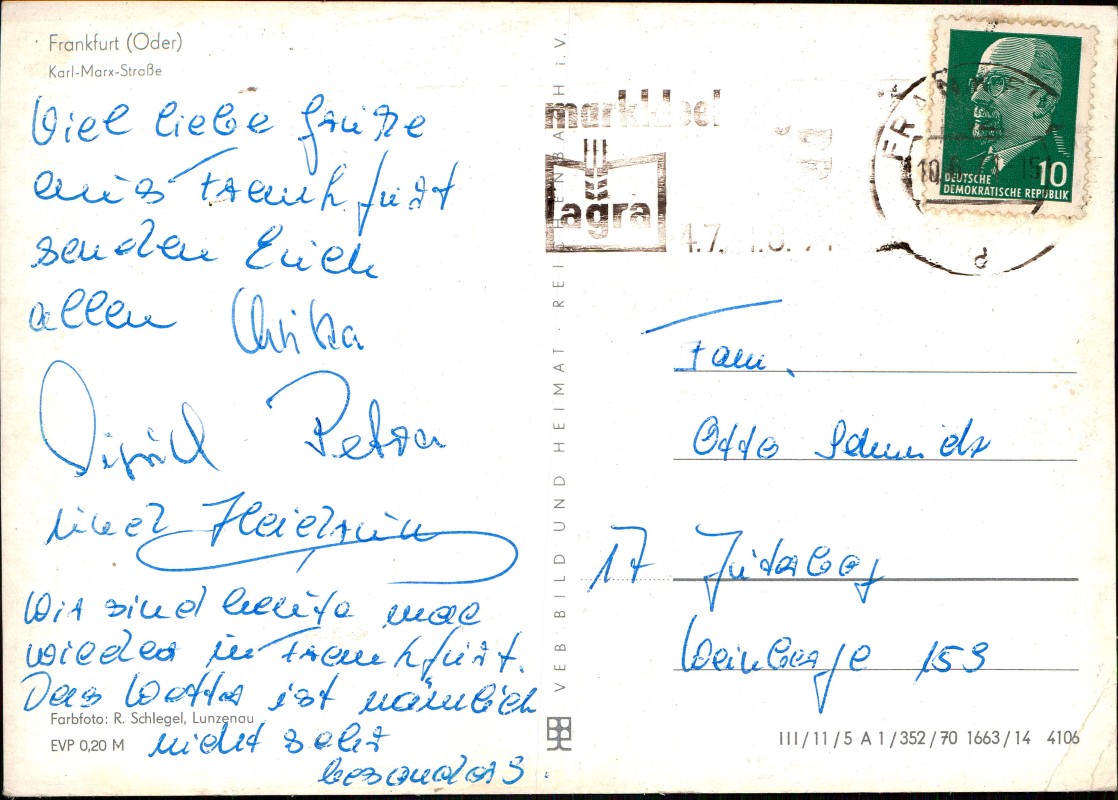 Frankfurt (Oder)
Karl-Marx-Straße
Viel liebe Grüße
aus Frankfurt
senden Erich
allen Ulrika
Sigrid Petra
und Heidrun
Wir sind heute mal
wieder in Frankfurt.
Das Wetter ist nämlich
nicht sehr
besonders.
Farbfoto: R. Schlegel, Lunzenau
EVP 0,20 M
VEB BILD UND HEIMAT · REICHENBACH i. V.
markkleeberg
agra
4.7.
FRANKFURT
10
15
d
10
DEUTSCHE
DEMOKRATISCHE REPUBLIK
Fam.
Otto Schmidt
17 Jüterbog
Weinberge 159
III/11/5 A 1/352/70 1663/14 4106